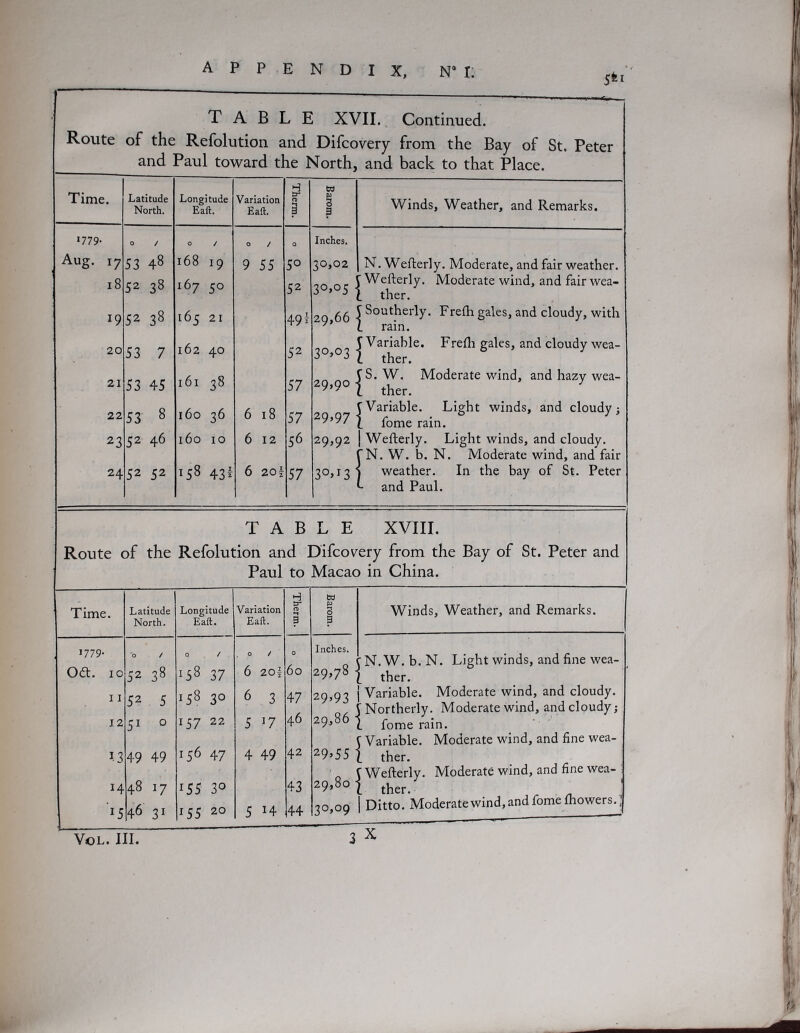 APPENDIX, N° I.
521
TABLE XVII. Continued.
Route of the Reſolution and Diſcovery from the Bay of St. Peter
and Paul toward the North, and back to that Place.
Time. Latitude North. Longitude Eaſt. Variation Eaſt. Therm. Barom. Winds, Weather, and Remarks.
1779. o / o / o / o Inches.
Aug. 17 53 48 168 19 9 55 50 30,02 N. Weſterly. Moderate, and fair weather.
18 52 38 167 50 52 30,05 { Weſterly. Moderate wind, and fair wea-
ther.
19 52 38 165 21 49½ 29,66 { Southerly. Freſh gales, and cloudy, with
rain.
20 53 7 162 40 52 30,03 { Variable. Freſh gales, and cloudy wea-
ther.
21 53 45 161 38 57 29,90 { S. W. Moderate wind, and hazy wea-
ther.
22 53 8 160 36 6 18 57 29,97 { Variable. Light winds, and cloudy;
ſome rain.
23 52 46 160 10 6 12 56 29,92 | Weſterly. Light winds, and cloudy.
24 52 52 158 43½ 6 20½ 57 30,13 { N. W. b. N. Moderate wind, and fair
weather. In the bay of St. Peter
and Paul.
TABLE XVIII.
Route of the Reſolution and Diſcovery from the Bay of St. Peter and
Paul to Macao in China.
Time. Latitude North. Longitude Eaſt. Variation Eaſt. Therm. Barom. Winds, Weather, and Remarks.
1779. o / o / o / o Inches.
Oct. 10 52 38 158 37 6 20½ 60 29,78 { N. W. b. N. Light winds, and fine wea-
ther.
11 52 5 158 30 6 3 47 29,93 | Variable. Moderate wind, and cloudy.
12 51 0 157 22 5 17 46 29,86 { Northerly. Moderate wind, and cloudy;
ſome rain.
13 49 49 156 47 4 49 42 29,55 { Variable. Moderate wind, and fine wea-
ther.
14 48 17 155 30 43 29,80 { Weſterly. Moderate wind, and fine wea-
ther.
15 46 31 155 20 5 14 44 30,09 | Ditto. Moderate wind, and ſome ſhowers.
VOL. III. 3 X